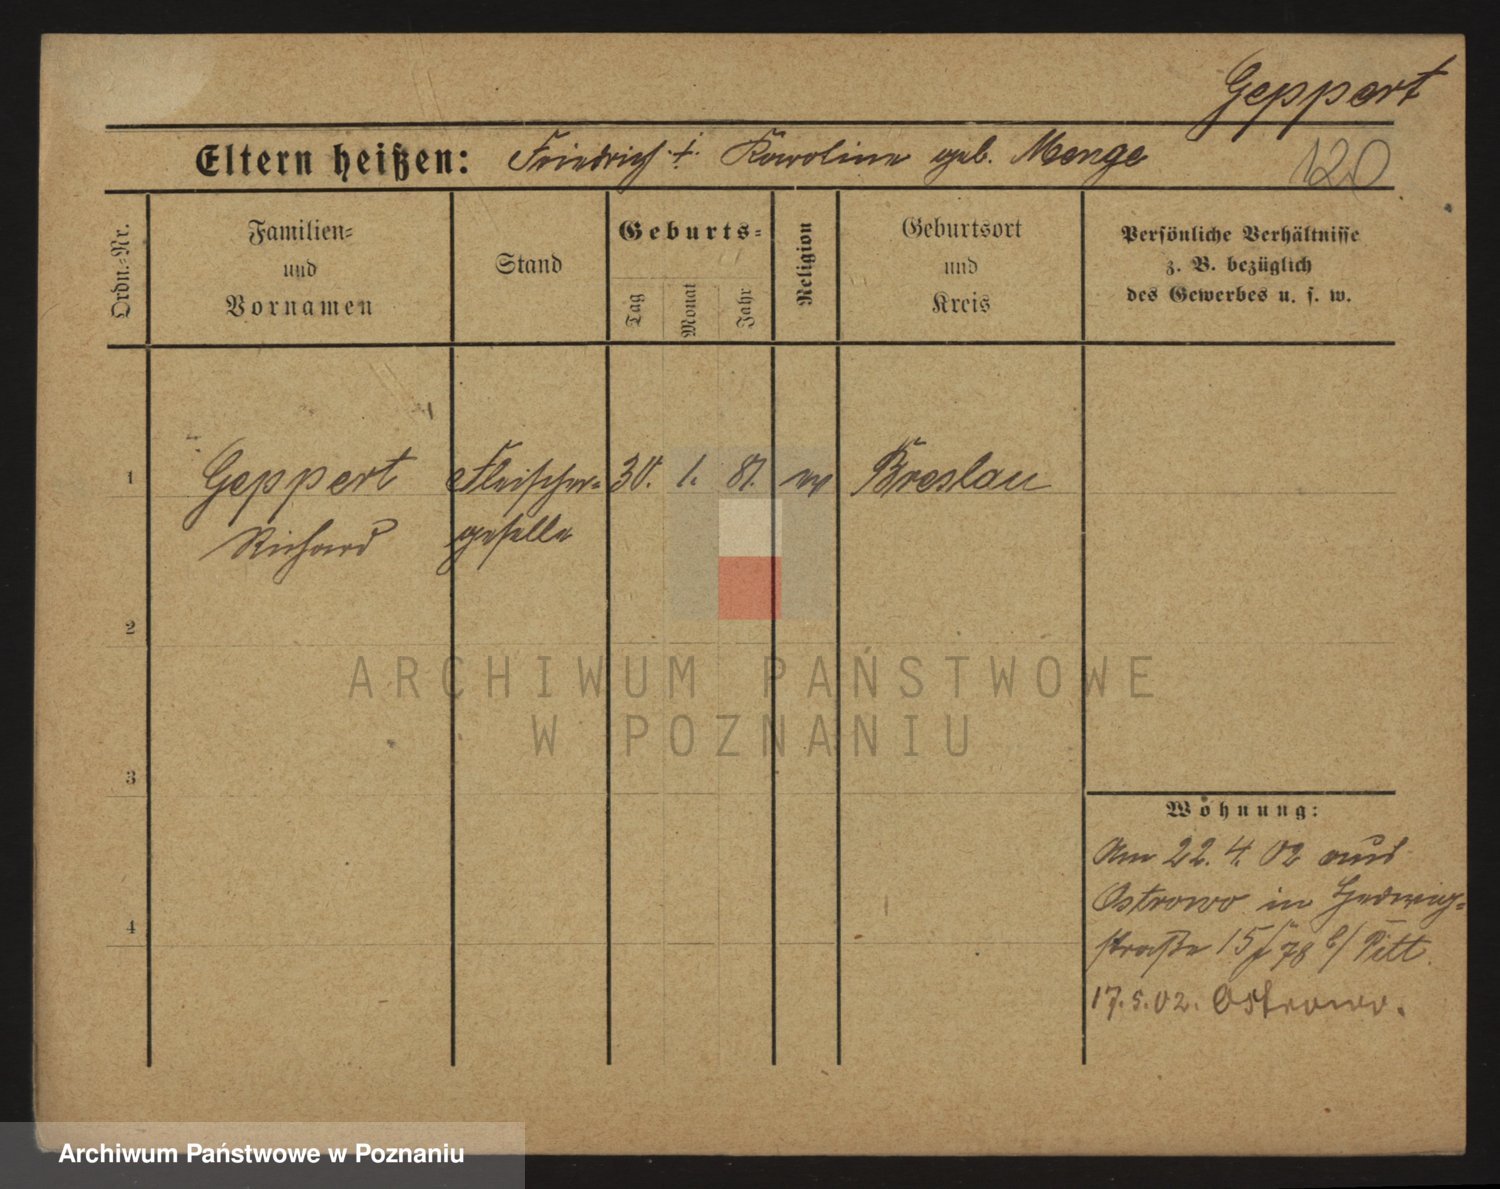 Geppert
120
Eltern heißen: Friedrich †. Karoline geb. Menge
Ordn.-Nr.
Familien-
und
Vornamen
Stand
Geburts-
Tag
Monat
Jahr
Religion
Geburtsort
und
Kreis
Persönliche Verhältnisse
z. B. bezüglich
des Gewerbes u. s. w.
1
Geppert Fleischer- 30. 1. 81. ev Breslau
Richard geselle
2
3
4
ARCHIWUM PAŃSTWOWE
W POZNANIU
Wohnung:
Am 22. 4. 02 aus
Ostrowo in Hedwig-
straße 15 78 b/ Pitt.
17. 5. 02. Ostrowo.
Archiwum Państwowe w Poznaniu